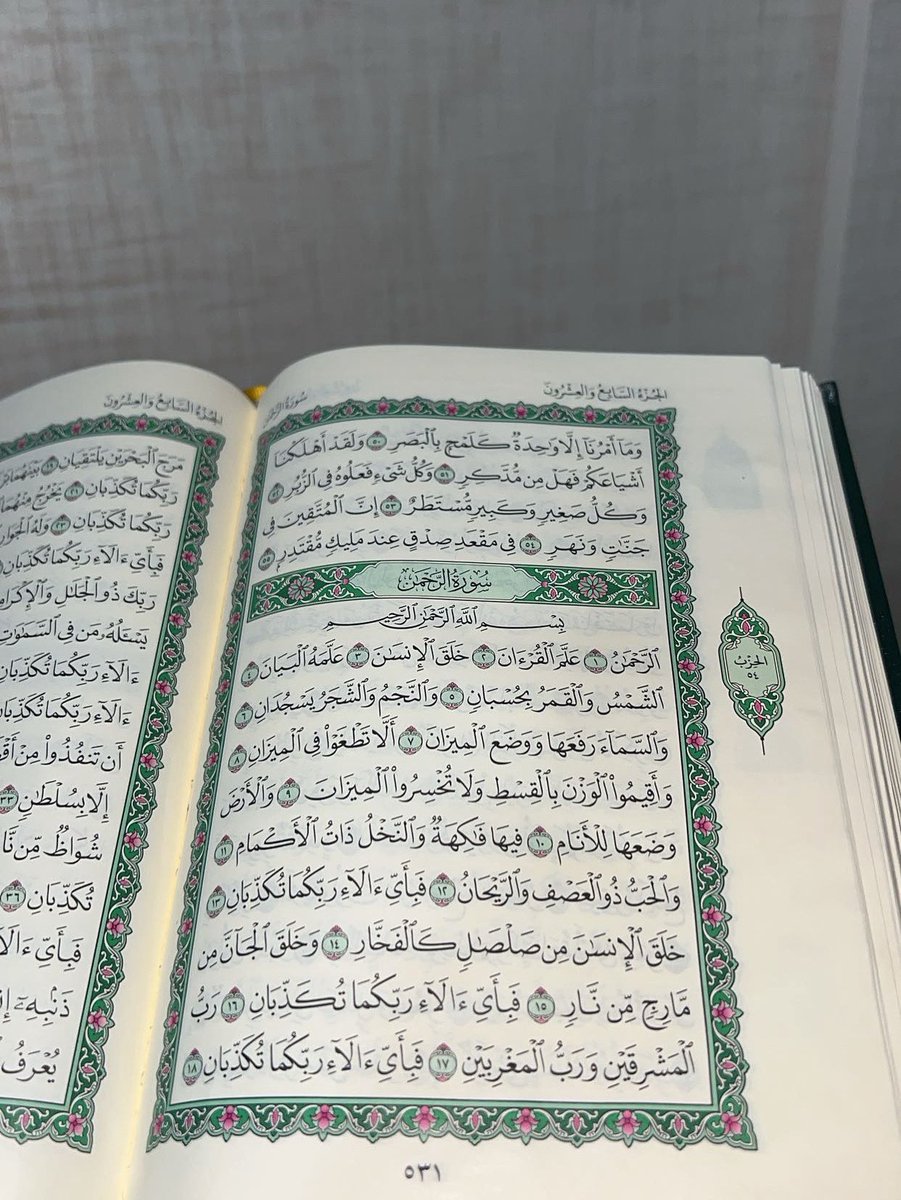 الجزء السابع والعشرون
سورة
وَمَا أَمْرُنَا إِلَّا وَٰحِدَةٌ كَلَمْحٍۭ بِالْبَصَرِ ٥٠ وَلَقَدْ أَهْلَكْنَا
أَشْيَاعَكُمْ فَهَلْ مِن مُّدَّكِرٍ ٥١ وَكُلُّ شَيْءٍ فَعَلُوهُ فِي الزُّبُرِ ٥٢
وَكُلُّ صَغِيرٍ وَكَبِيرٍ مُّسْتَطَرٌ ٥٣ إِنَّ الْمُتَّقِينَ فِي
جَنَّٰتٍ وَنَهَرٍ ٥٤ فِي مَقْعَدِ صِدْقٍ عِندَ مَلِيكٍ مُّقْتَدِرٍ ٥٥
سُورَةُ الرَّحْمَٰن
بِسْمِ اللَّهِ الرَّحْمَٰنِ الرَّحِيمِ
الرَّحْمَٰنُ ١ عَلَّمَ الْقُرْءَانَ ٢ خَلَقَ الْإِنسَٰنَ ٣ عَلَّمَهُ الْبَيَانَ ٤
الشَّمْسُ وَالْقَمَرُ بِحُسْبَانٍ ٥ وَالنَّجْمُ وَالشَّجَرُ يَسْجُدَانِ ٦
وَالسَّمَاءَ رَفَعَهَا وَوَضَعَ الْمِيزَانَ ٧ أَلَّا تَطْغَوْا فِي الْمِيزَانِ ٨
وَأَقِيمُوا الْوَزْنَ بِالْقِسْطِ وَلَا تُخْسِرُوا الْمِيزَانَ ٩ وَالْأَرْضَ
وَضَعَهَا لِلْأَنَامِ ١٠ فِيهَا فَٰكِهَةٌ وَالنَّخْلُ ذَاتُ الْأَكْمَامِ ١١
وَالْحَبُّ ذُو الْعَصْفِ وَالرَّيْحَانُ ١٢ فَبِأَيِّ ءَالَاءِ رَبِّكُمَا تُكَذِّبَانِ ١٣
خَلَقَ الْإِنسَٰنَ مِن صَلْصَٰلٍ كَالْفَخَّارِ ١٤ وَخَلَقَ الْجَانَّ مِن
مَّارِجٍ مِّن نَّارٍ ١٥ فَبِأَيِّ ءَالَاءِ رَبِّكُمَا تُكَذِّبَانِ ١٦ رَبُّ
الْمَشْرِقَيْنِ وَرَبُّ الْمَغْرِبَيْنِ ١٧ فَبِأَيِّ ءَالَاءِ رَبِّكُمَا تُكَذِّبَانِ ١٨
٥٣١
الحزب
٥٤
الجزء السابع والعشرون
مَرَجَ الْبَحْرَيْنِ يَلْتَقِيَانِ ١٩ بَيْنَهُمَا
رَبِّكُمَا تُكَذِّبَانِ ٢١ يَخْرُجُ مِنْهُمَا
رَبِّكُمَا تُكَذِّبَانِ ٢٣ وَلَهُ الْجَوَارِ
فَبِأَيِّ ءَالَاءِ رَبِّكُمَا تُكَذِّبَانِ
رَبِّكَ ذُو الْجَلَٰلِ وَالْإِكْرَامِ
يَسْـَٔلُهُ مَن فِي السَّمَٰوَٰتِ
ءَالَاءِ رَبِّكُمَا تُكَذِّبَانِ
ءَالَاءِ رَبِّكُمَا تُكَذِّبَانِ
أَن تَنفُذُوا مِنْ
إِلَّا بِسُلْطَٰنٍ ٣٣
شُوَاظٌ مِّن
تُكَذِّبَانِ ٣٦
فَبِأَيِّ
ذَنۢبِهِ
يُعْرَفُ